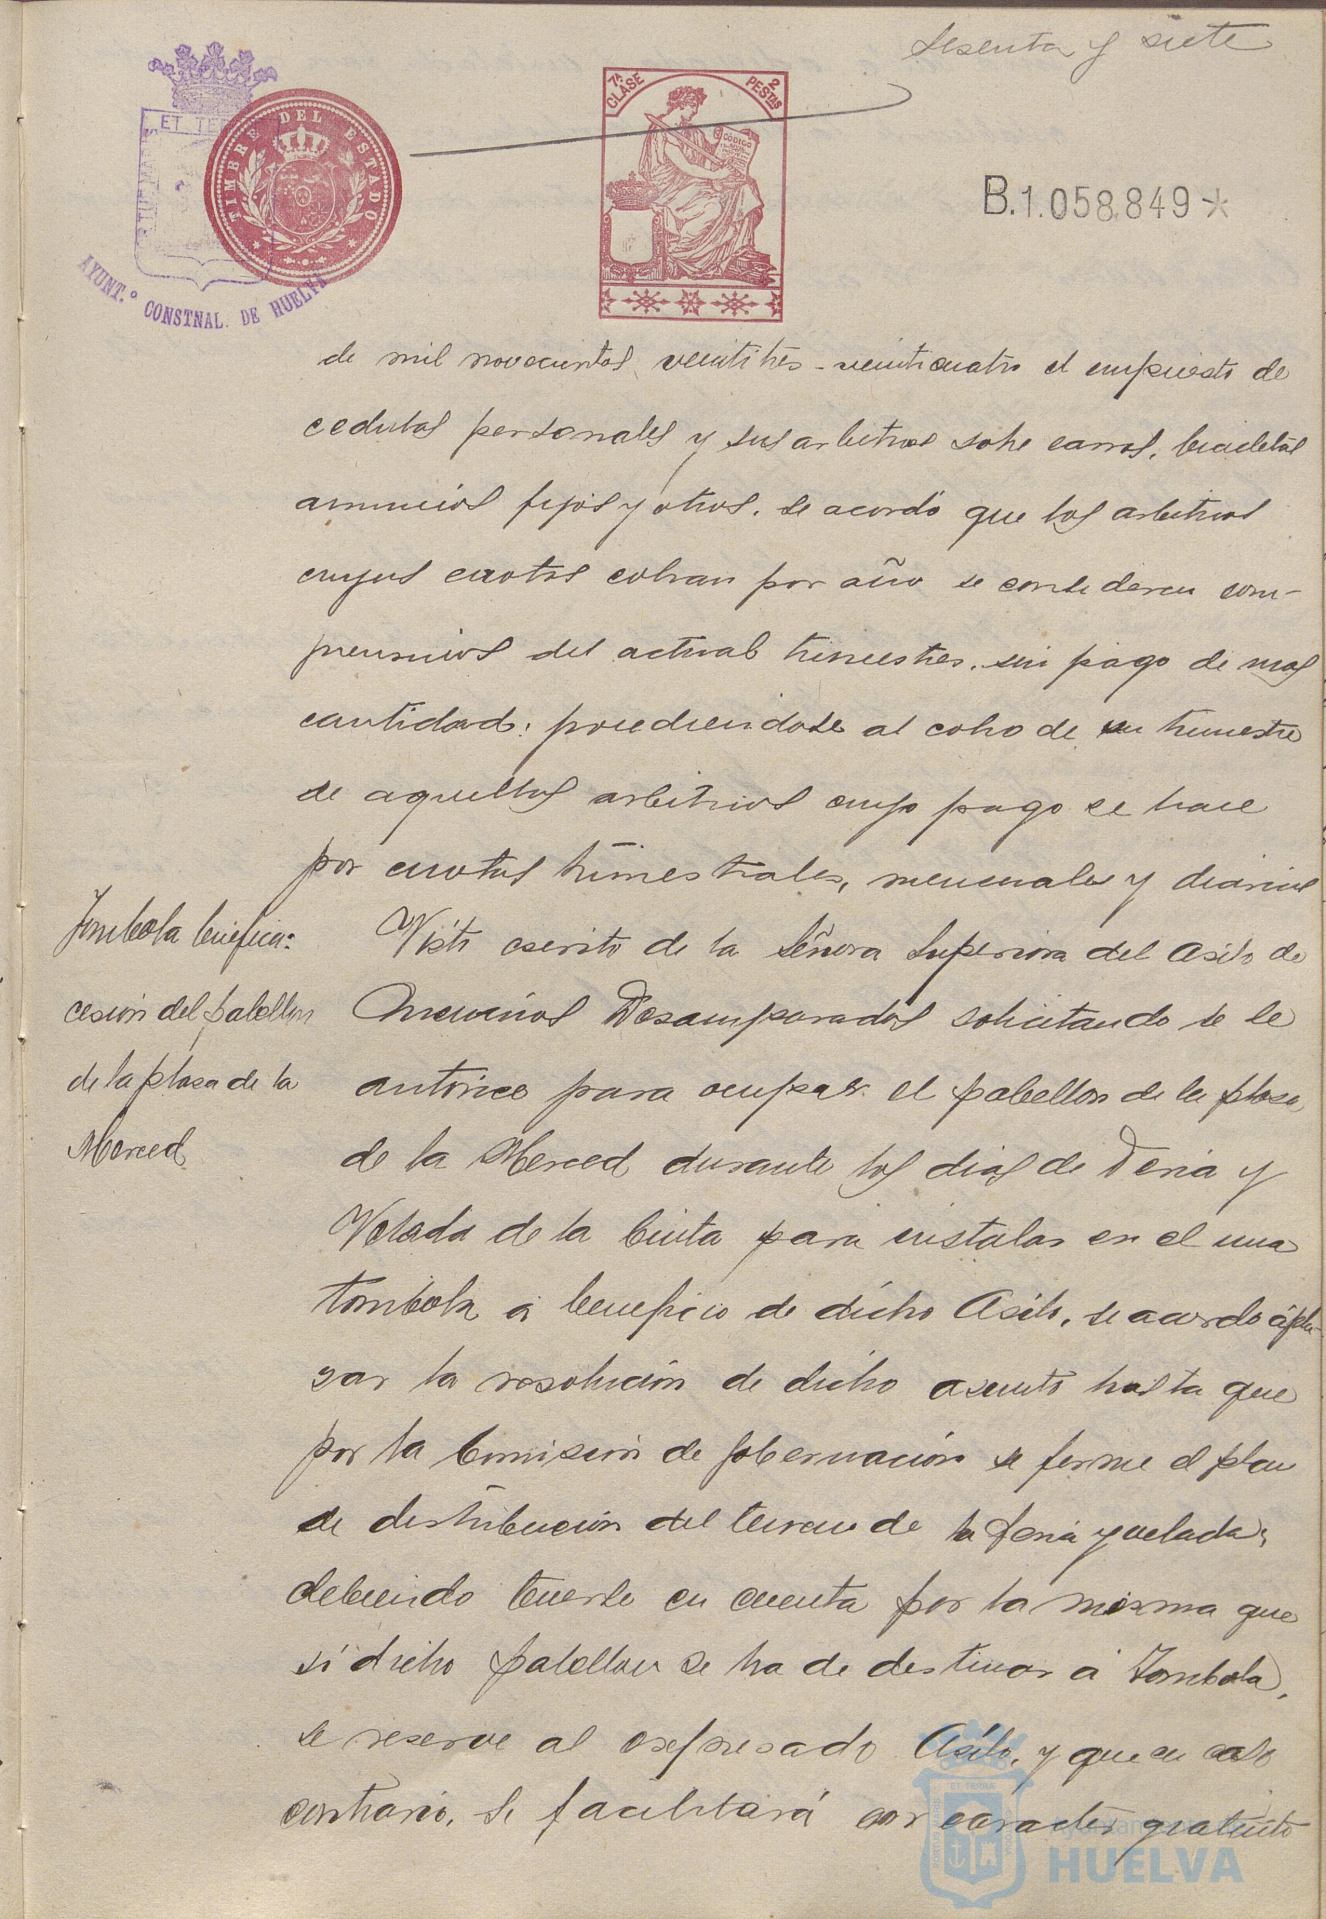 sesenta y siete
7ª CLASE
2 PESTAS
CÓDIGO
TIMBRE DEL ESTADO
AYUNT.º CONSTNAL. DE HUELVA
B.1.058.849*
de mil novecientos veintitrés-veinticuatro el impuesto de
cedulas personales y sus arbitrios sobre carros, bicicletas
anuncios fijos y otros, se acordó que los arbitrios
cuyas cuotas cobran por año se consideren com-
prensivos del actual trimestre, sin pago de mas
cantidad; procediendose al cobro de un trimestre
de aquellos arbitrios cuyo pago se hace
por cuotas trimestrales, mensuales y diarias
Tombola benefica:
cesión del pabellon
de la plasa de la
Merced
Visto escrito de la Señora Superiora del Asilo de
Ancianos Desamparados solicitando se le
autorice para ocupar el pabellon de la plasa
de la Merced durante los dias de Feria y
Velada de la Cinta para instalar en el una
tombola á beneficio de dicho Asilo, se acordó apla-
zar la resolución de dicho asunto hasta que
por la Comisión de Gobernación se forme el plan
de distribución del terreno de la Feria y velada;
debiendo tenerse en cuenta por la misma que
si dicho pabellon se ha de destinar á Tombola,
se reserve al expresado Asilo, y que en caso
contrario, se facilitará con carácter gratuito
Ayuntamiento
HUELVA